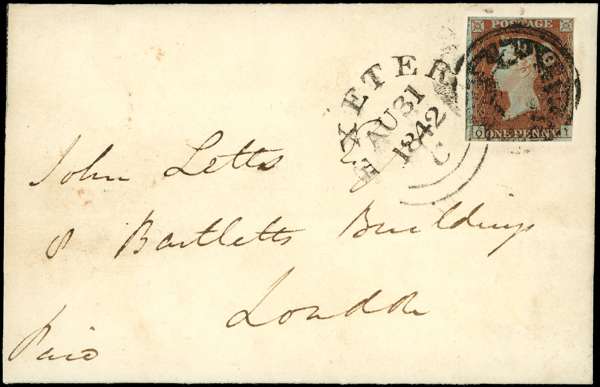 POSTAGE
ONE PENNY
EXETER
AU 31
1842
C
John Letts Esq
8 Bartletts Buildings
London
Paid